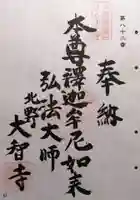 第八十六番
奉納
本尊釋迦牟尼如来
弘法大師
北野
大智寺